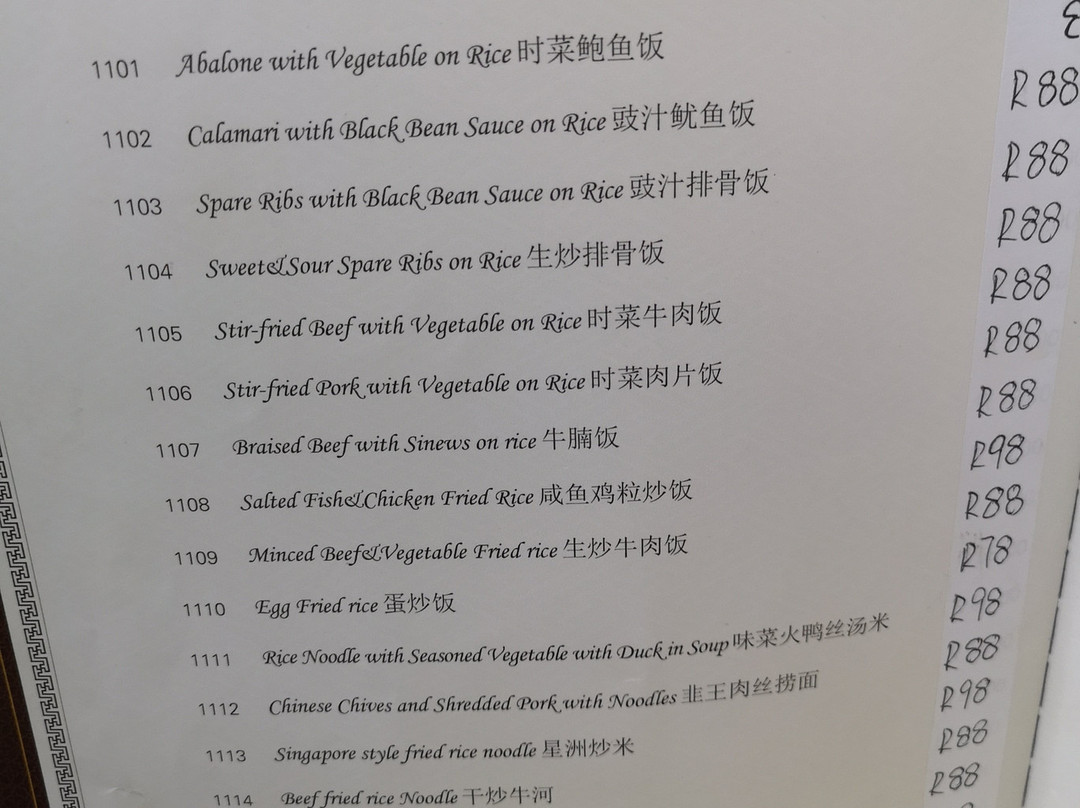 1101 Abalone with Vegetable on Rice 时菜鲍鱼饭
1102 Calamari with Black Bean Sauce on Rice 豉汁鱿鱼饭 R88
1103 Spare Ribs with Black Bean Sauce on Rice 豉汁排骨饭 R88
1104 Sweet&Sour Spare Ribs on Rice 生炒排骨饭 R88
1105 Stir-fried Beef with Vegetable on Rice 时菜牛肉饭 R88
1106 Stir-fried Pork with Vegetable on Rice 时菜肉片饭 R88
1107 Braised Beef with Sinews on rice 牛腩饭 R88
1108 Salted Fish&Chicken Fried Rice 咸鱼鸡粒炒饭 R98
1109 Minced Beef&Vegetable Fried rice 生炒牛肉饭 R88
1110 Egg Fried rice 蛋炒饭 R78
1111 Rice Noodle with Seasoned Vegetable with Duck in Soup 味菜火鸭丝汤米 R98
1112 Chinese Chives and Shredded Pork with Noodles 韭王肉丝捞面 R88
1113 Singapore style fried rice noodle 星洲炒米 R98
1114 Beef fried rice Noodle 干炒牛河 R88
R88